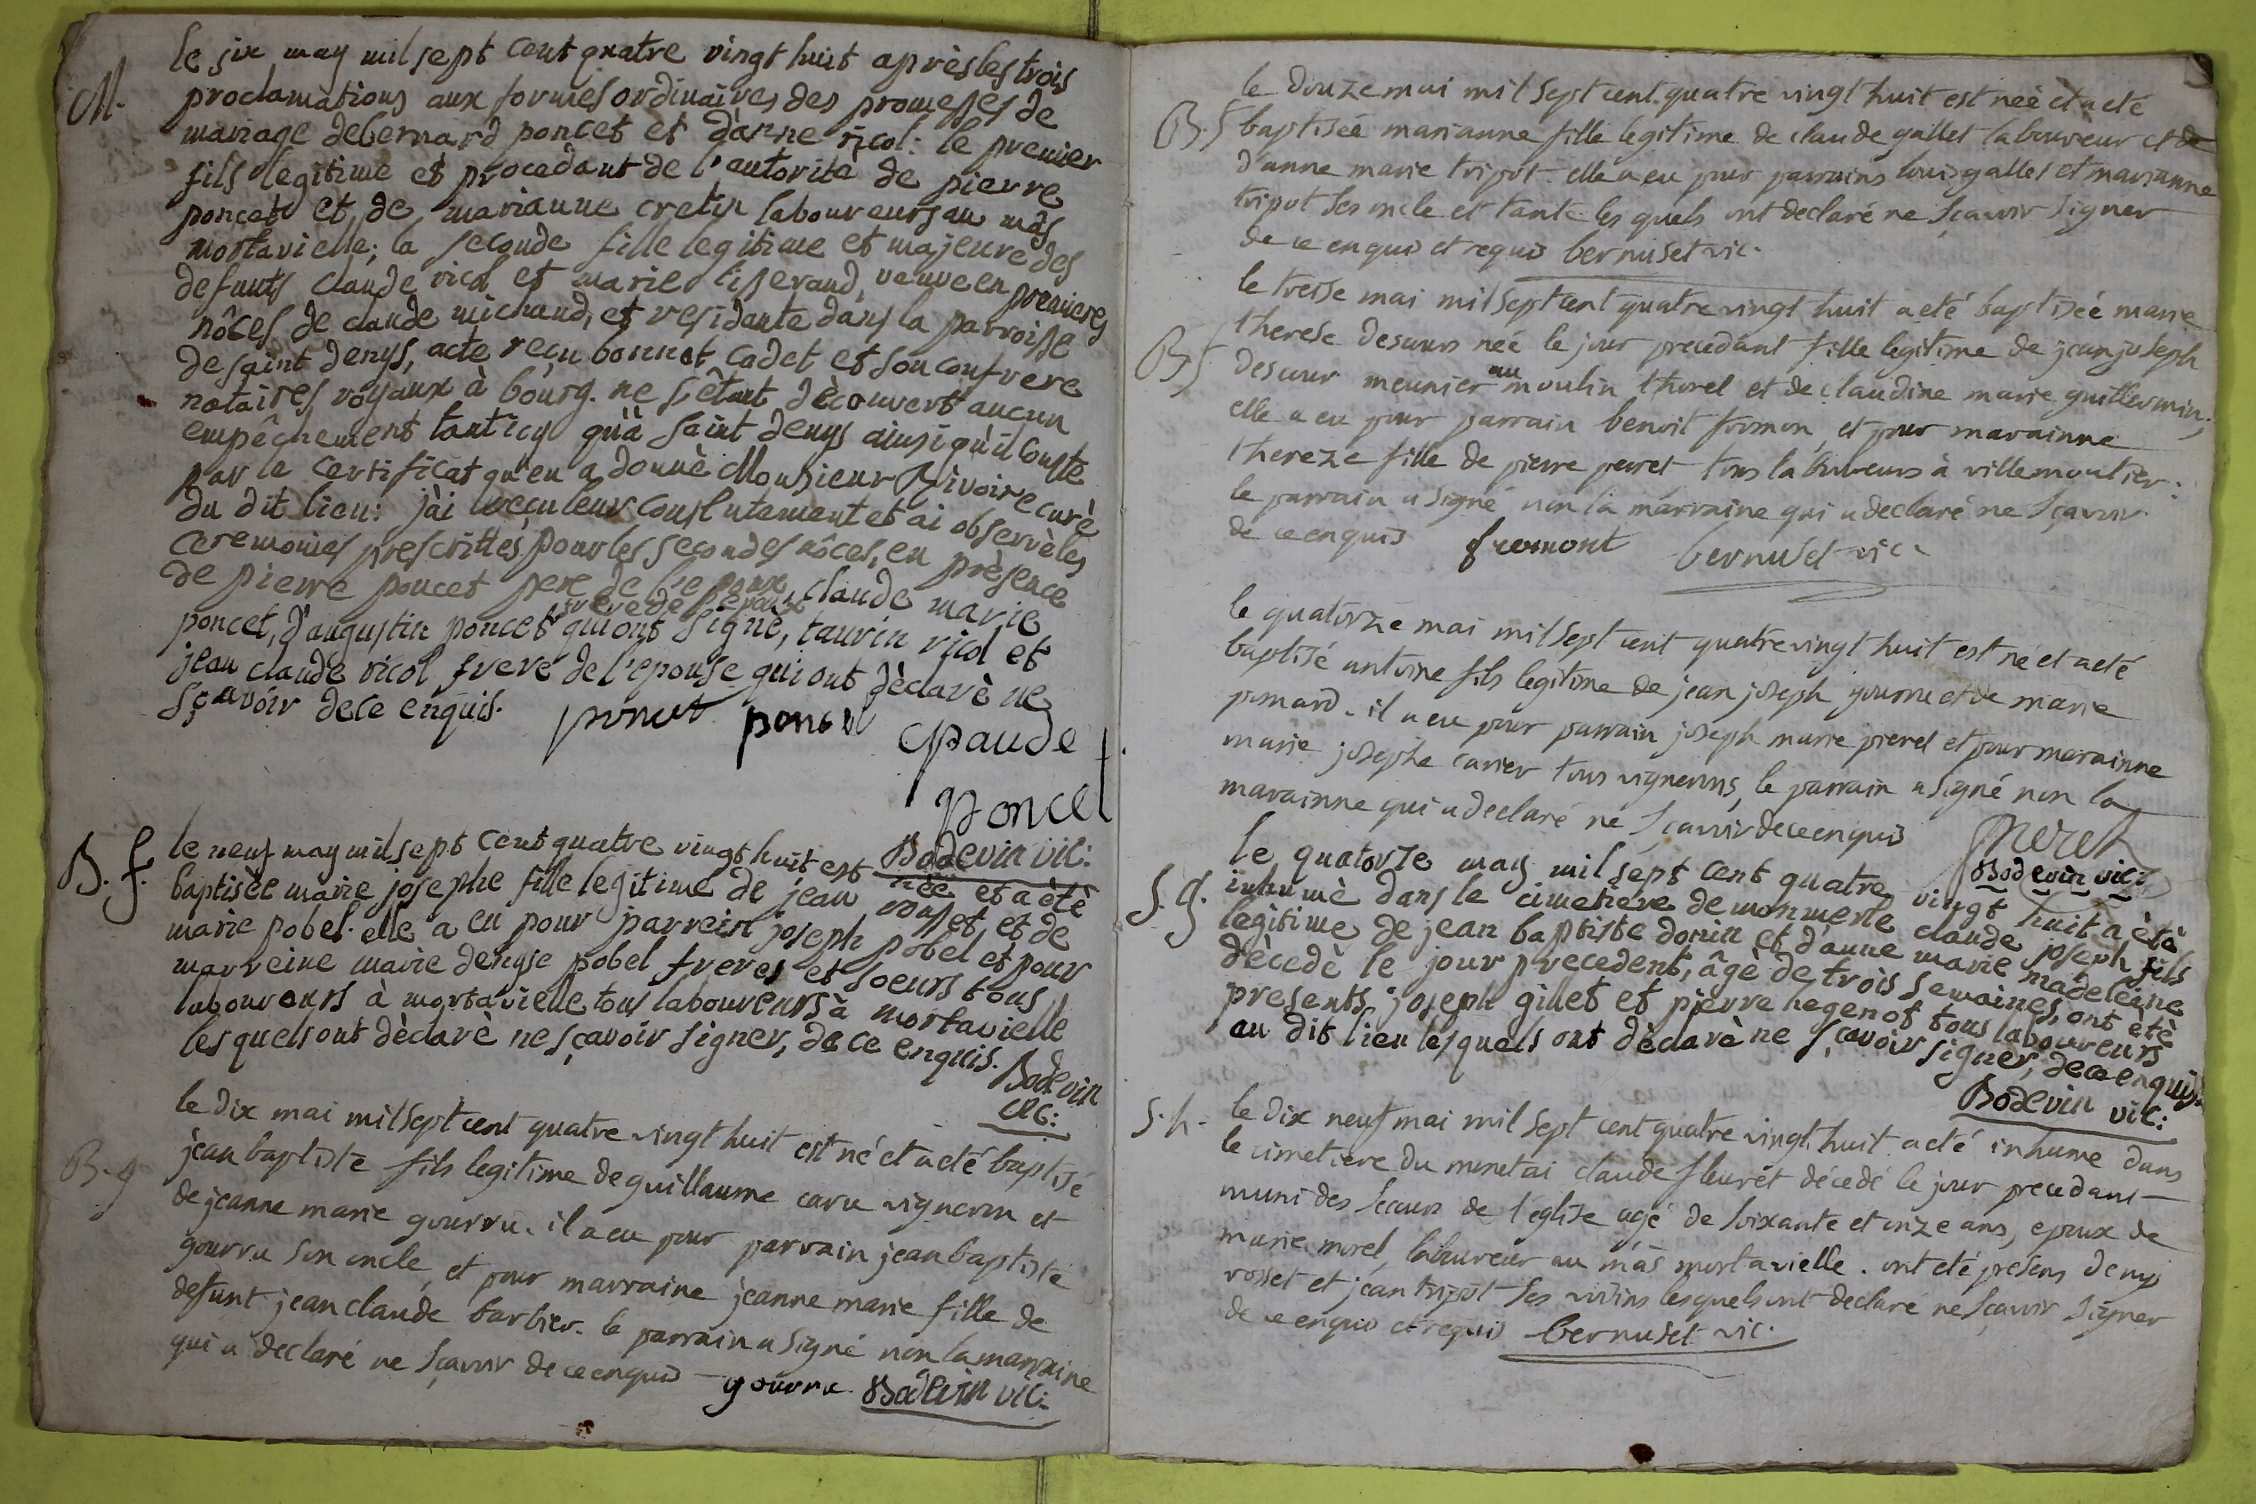 M.
le six may mil sept cent quatre vingt huit après les trois
proclamations aux formes ordinaires des promesses de
mariage de bernard poncet et d'anne ricol: le premier
fils legitime et procedant de l'autorité de pierre
poncet et de marianne cretin laboureurs au mas
mortavielle; la seconde fille legitime et majeure des
defunts claude ricol et marie tisserand, veuve en premieres
nôces de claude michaud, et residante dans la parroisse
de saint denys, acte reçu bonnet cadet et son confrere
notaires royaux à bourg. ne s'êtant dècouvert aucun
empêchement tant icy qu'à saint denys ainsi qu'il conste
par le certificat qu'en a donnè Monsieur Rivoire curè
du dit lieu: j'ai reçu leur consentement et ai observè les
ceremonies prescrittes pour les secondes nôces, en prèsence
de pierre poncet pere de l'epoux claude marie
frere de l'epoux
poncet, d'augustin poncet qui ont signè, taurin ricol et
jean claude ricol frere de l'epouse qui ont dèclarè ne
sçavoir de ce enquis. poncet poncet
claude
poncet
Bodevin vic:
B. f.
le neuf may mil sept cent quatre vingt huit est nèe et a ètè
baptisèe marie josephe fille legitime de jean rosset et de
marie pobel. elle a eu pour parrein joseph pobel et pour
marreine marie denyse pobel freres et soeurs tous
laboureurs à mortavielle tous laboureurs à mortavielle
lesquels ont dèclarè ne sçavoir signer, de ce enquis.
Bodevin
vic:
B. g
le dix mai mil sept cent quatre vingt huit est né et a eté baptisé
jean baptiste fils legitime de guillaume caru vigneron et
de jeanne marie gourru. il a eu pour parrain jean baptiste
gourru son oncle, et pour marraine jeanne marie fille de
defunt jean claude barbier. le parrain a signé non la marraine
qui a declaré ne sçavoir de ce enquis gourru Bodevin vic:
B. f
le douze mai mil sept cent quatre vingt huit est neé et a eté
baptiseé marianne fille legitime de claude gallet laboureur et de
d'anne marie tripot. elle a eu pour parrains louis gallet et marianne
tripot ses oncle et tante les quels ont declaré ne sçavoir signer
de ce enquis et requis bernuset vic.
B f
le treise mai mil sept cent quatre vingt huit a eté baptiseé marie
therese descours neé le jour precedant fille legitime de jean joseph
au
descour meunier moulin thorel et de claudine marie guillermin;
elle a eu pour parrain benoit fromon, et pour marainne
thereze fille de pierre perret tous laboureurs à villemoutier.
le parrain a signé non la marraine qui a declaré ne sçavoir
de ce enquis fremont bernuset vic.
le quatorze mai mil sept cent quatre vingt huit est né et a eté
baptisé antoine fils legitime de jean joseph gourru et de marie
ponard. il a eu pour parrain joseph marie pieret et pour marainne
marie josephe carier tous vignerons, le parrain a signé non la
marainne qui a declaré ne sçavoir de ce enquis
Bodevin vic:
S. g.
le quatorze may mil sept cent quatre vingt huit a ètè
inhumè dans le cimetière de monmerle claude joseph fils
legitime de jean baptiste donin et d'anne marie madeleine
dècedè le jour precedent, âgè de trois semaines, ont ètè
presents joseph gillet et pierre hegenot tous laboureurs
au dit lieu lesquels ont dèclarè ne sçavoir signer, de ce enquis.
Bodevin vic:
S. h.
le dix neuf mai mil sept cent quatre vingt huit a eté inhumé dans
le cimetiere du monetai claude fleurét décedé le jour precedant
muni des secours de l'église agé de soixante et onze ans, epoux de
marie morel, laboureur au mas mortavielle. ont eté présens denys
rosset et jean tripot ses voisins lesquels ont declaré ne sçavoir signer
de ce enquis et requis bernuset vic.